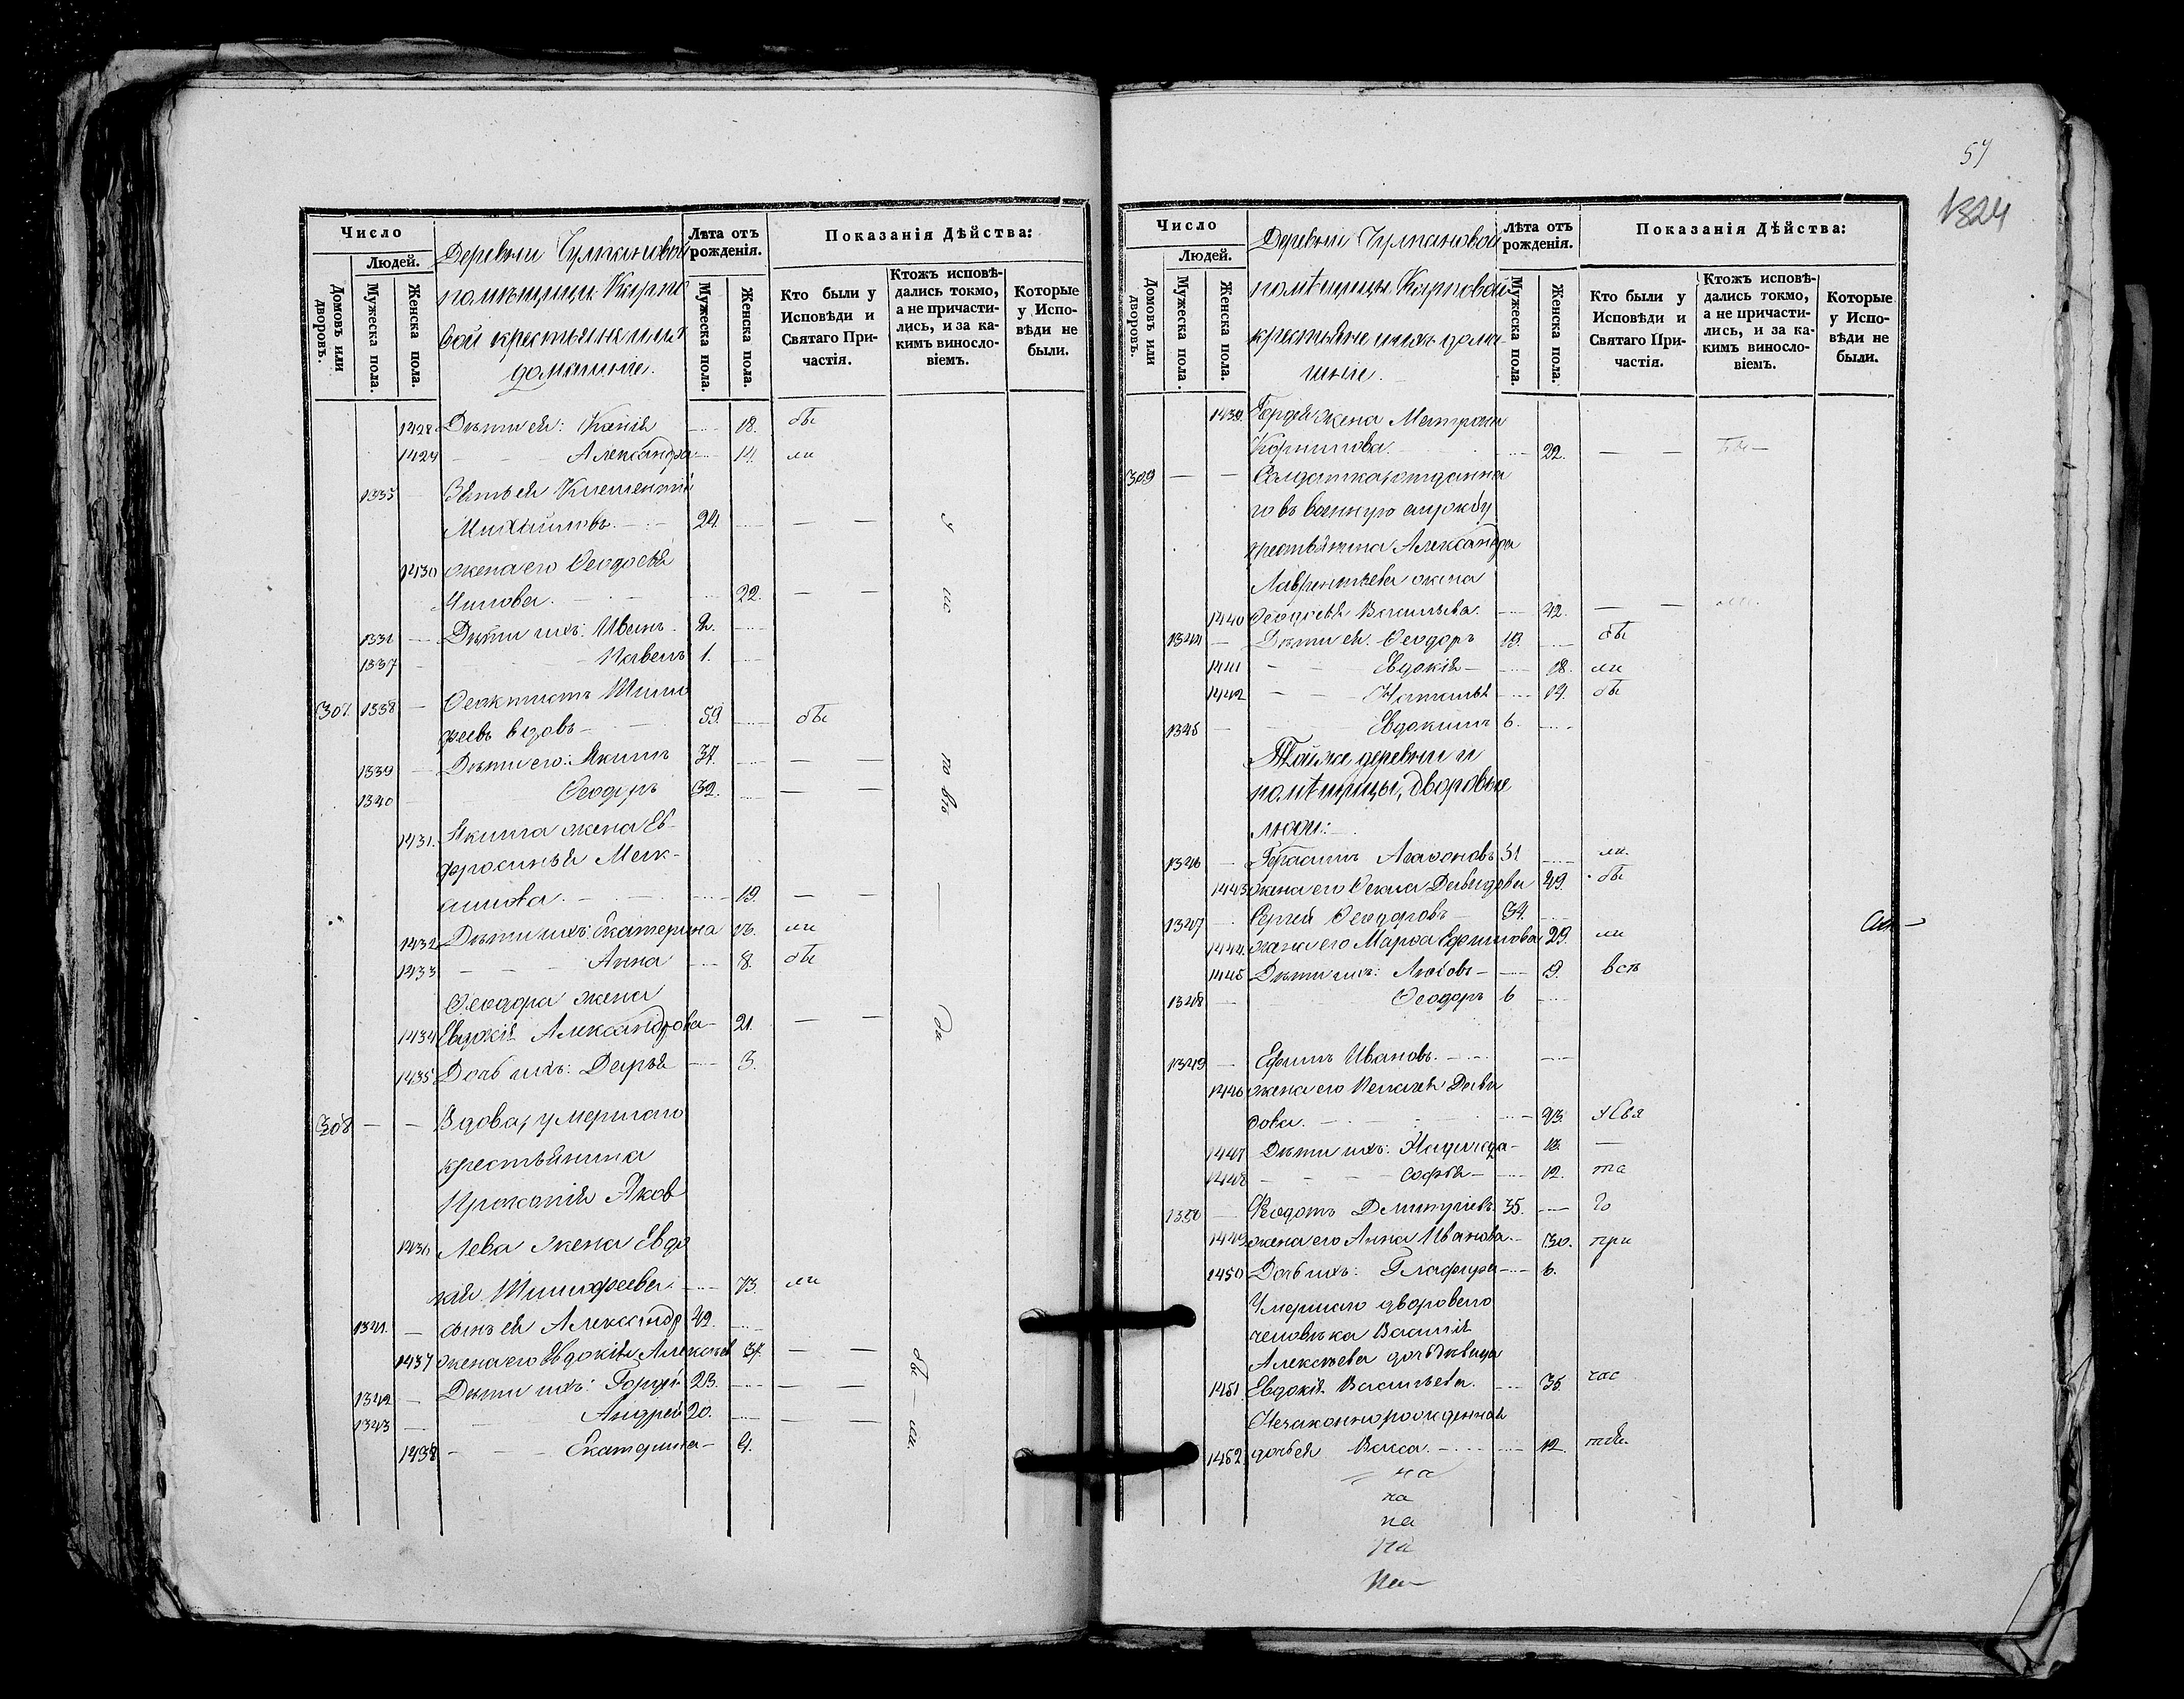 Число
Людей.
Домовъ или дворовъ.
Мужеска пола.
Женска пола.
Деревни Чулпановой
помѣщицы Карпо
вой крестьяне и ихъ
домашніе.
Лѣта отъ рожденія.
Мужеска пола.
Женска пола.
Показанія Дѣйства:
Кто были у Исповѣди и Святаго Причастія.
Ктожъ исповѣдались токмо, а не причастились, и за какимъ винословіемъ.
Которые у Исповѣди не были.
1428 Дѣти ей: Ксенія 18. бы
1429 Александра 14. ли
1335 Зять ей Климентій
Михайловъ 24.
1430 жена его Ѳеодосія
22.
1336 Дѣти ихъ: Иванъ 2.
1337 Павелъ 1.
307. 1338 Ѳеоктистъ Тимо
феевъ вдовъ 59. бы
1339 Дѣти его: Якимъ 34.
1340 Ѳеодоръ 32.
1431. Якима жена Ев-
фросинья Мак-
симова 19.
1432 Дѣти ихъ: Екатерина ли
1433 Анна 8. бы
Ѳеодора жена
1434 Евдокія Александрова 21.
1435 Дочь ихъ: Дарья 3.
308 Вдова, умершаго
крестьянина
Прокопія Яков
1436 лева жена Евдо
кія Тимофеева 73. ли
1341. сынъ ей Александръ 49.
1437 жена его Евдокія Алексѣев
1342 Дѣти ихъ: Гордѣй 23.
1343 Андрей 20.
1438 Екатерина
57
1324
Число
Людей.
Домовъ или дворовъ.
Мужеска пола.
Женска пола.
Деревни Чулпановой
помѣщицы Карповой
крестьяне и ихъ дома-
шніе.
Лѣта отъ рожденія.
Мужеска пола.
Женска пола.
Показанія Дѣйства:
Кто были у Исповѣди и Святаго Причастія.
Ктожъ исповѣдались токмо, а не причастились, и за какимъ винословіемъ.
Которые у Исповѣди не были.
1439. Гордѣя жена Матрона
Корнилова. 22.
309 Солдатка, отданна
го въ военную службу
крестьянина Александра
Лаврентьева жена
1440 Ѳеодосья Васильева. 42.
1344 Дѣти ей. Ѳеодоръ 19. бы
1441 Евдокія 18. ли
1442 Наталья 14. бы
1345 Евдокимъ 6.
Той же деревни и
помѣщицы, дворовые
люди:
1346 Герасимъ Агаѳоновъ 51 ли.
1443 жена его Ѳекла Давыдова 49. бы
1347 Сергей Ѳеодоровъ 34.
1444. жена его Марѳа Ефимова 29. ли
1445 Дѣти ихъ: Любовь 9. всѣ
1348 Ѳеодоръ 6
1349 Ефимъ Ивановъ.
1446 жена его Пелагія Давы
дова. 43.
1447 Дѣти ихъ: Надежда 18.
1448 Софья 12. та
1350 Ѳеодотъ Димитріевъ 35. го
1449 жена его Анна Иванова 30. при
1450 Дочь ихъ: Глафира 6.
Умершаго двороваго
человѣка Василія
Алексѣева дочь дѣвица
1451. Евдокія Васильева. 35. час
Незаконнорожденная
1452 дочь ей Васса. 12. тія.
на
на
на
на
на